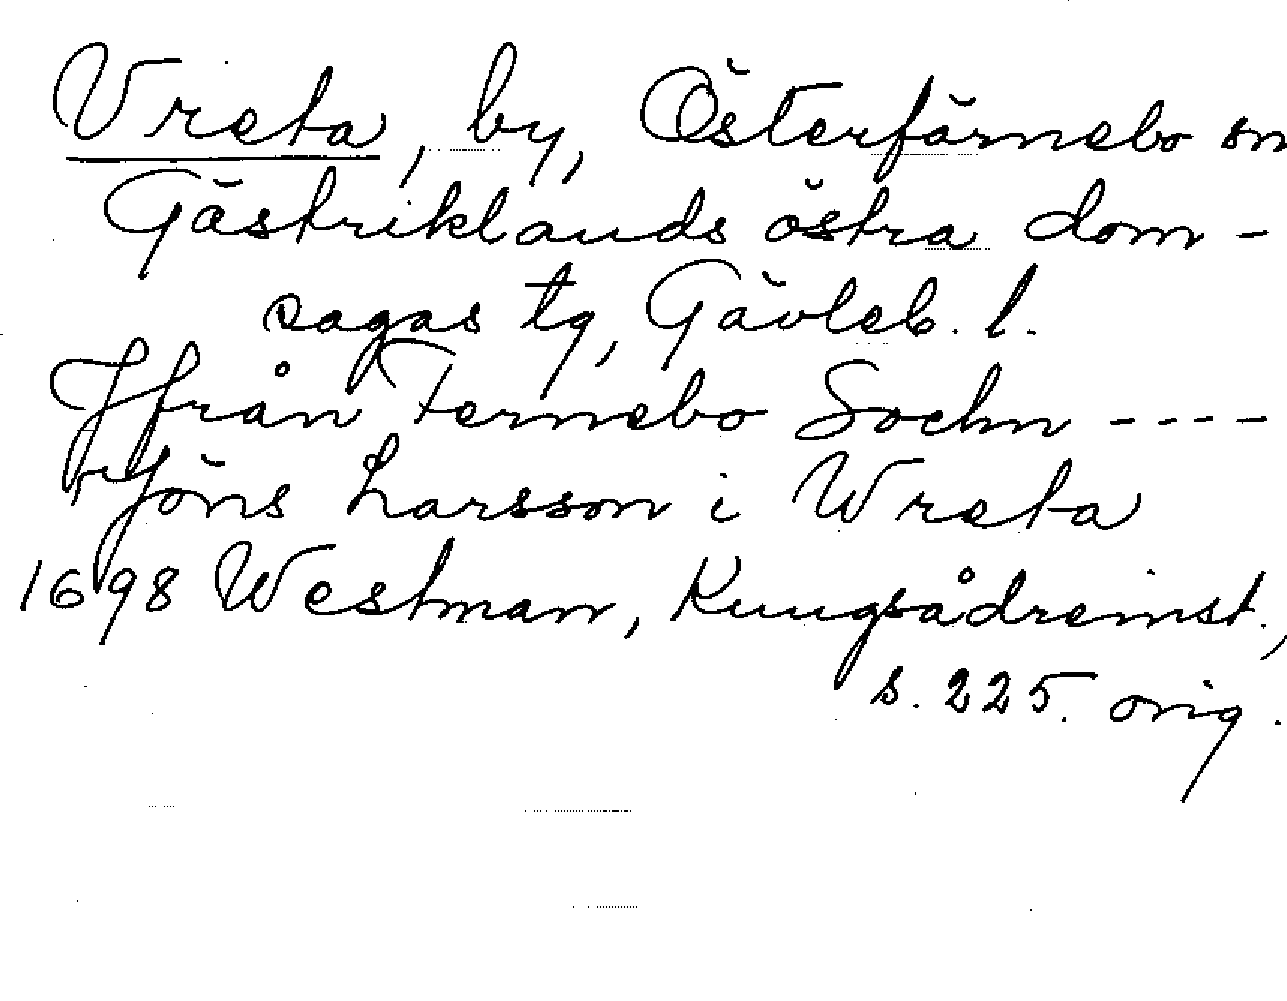 Vreta, by, Österfärnebo sn
Gästriklands östra dom-
sagas tg, Gävleb. l.
Jfrån Fernebo Sochn ----
Jöns Larsson i Wreta
1698 Westman, Kungsådreinst.,
s. 225. orig.